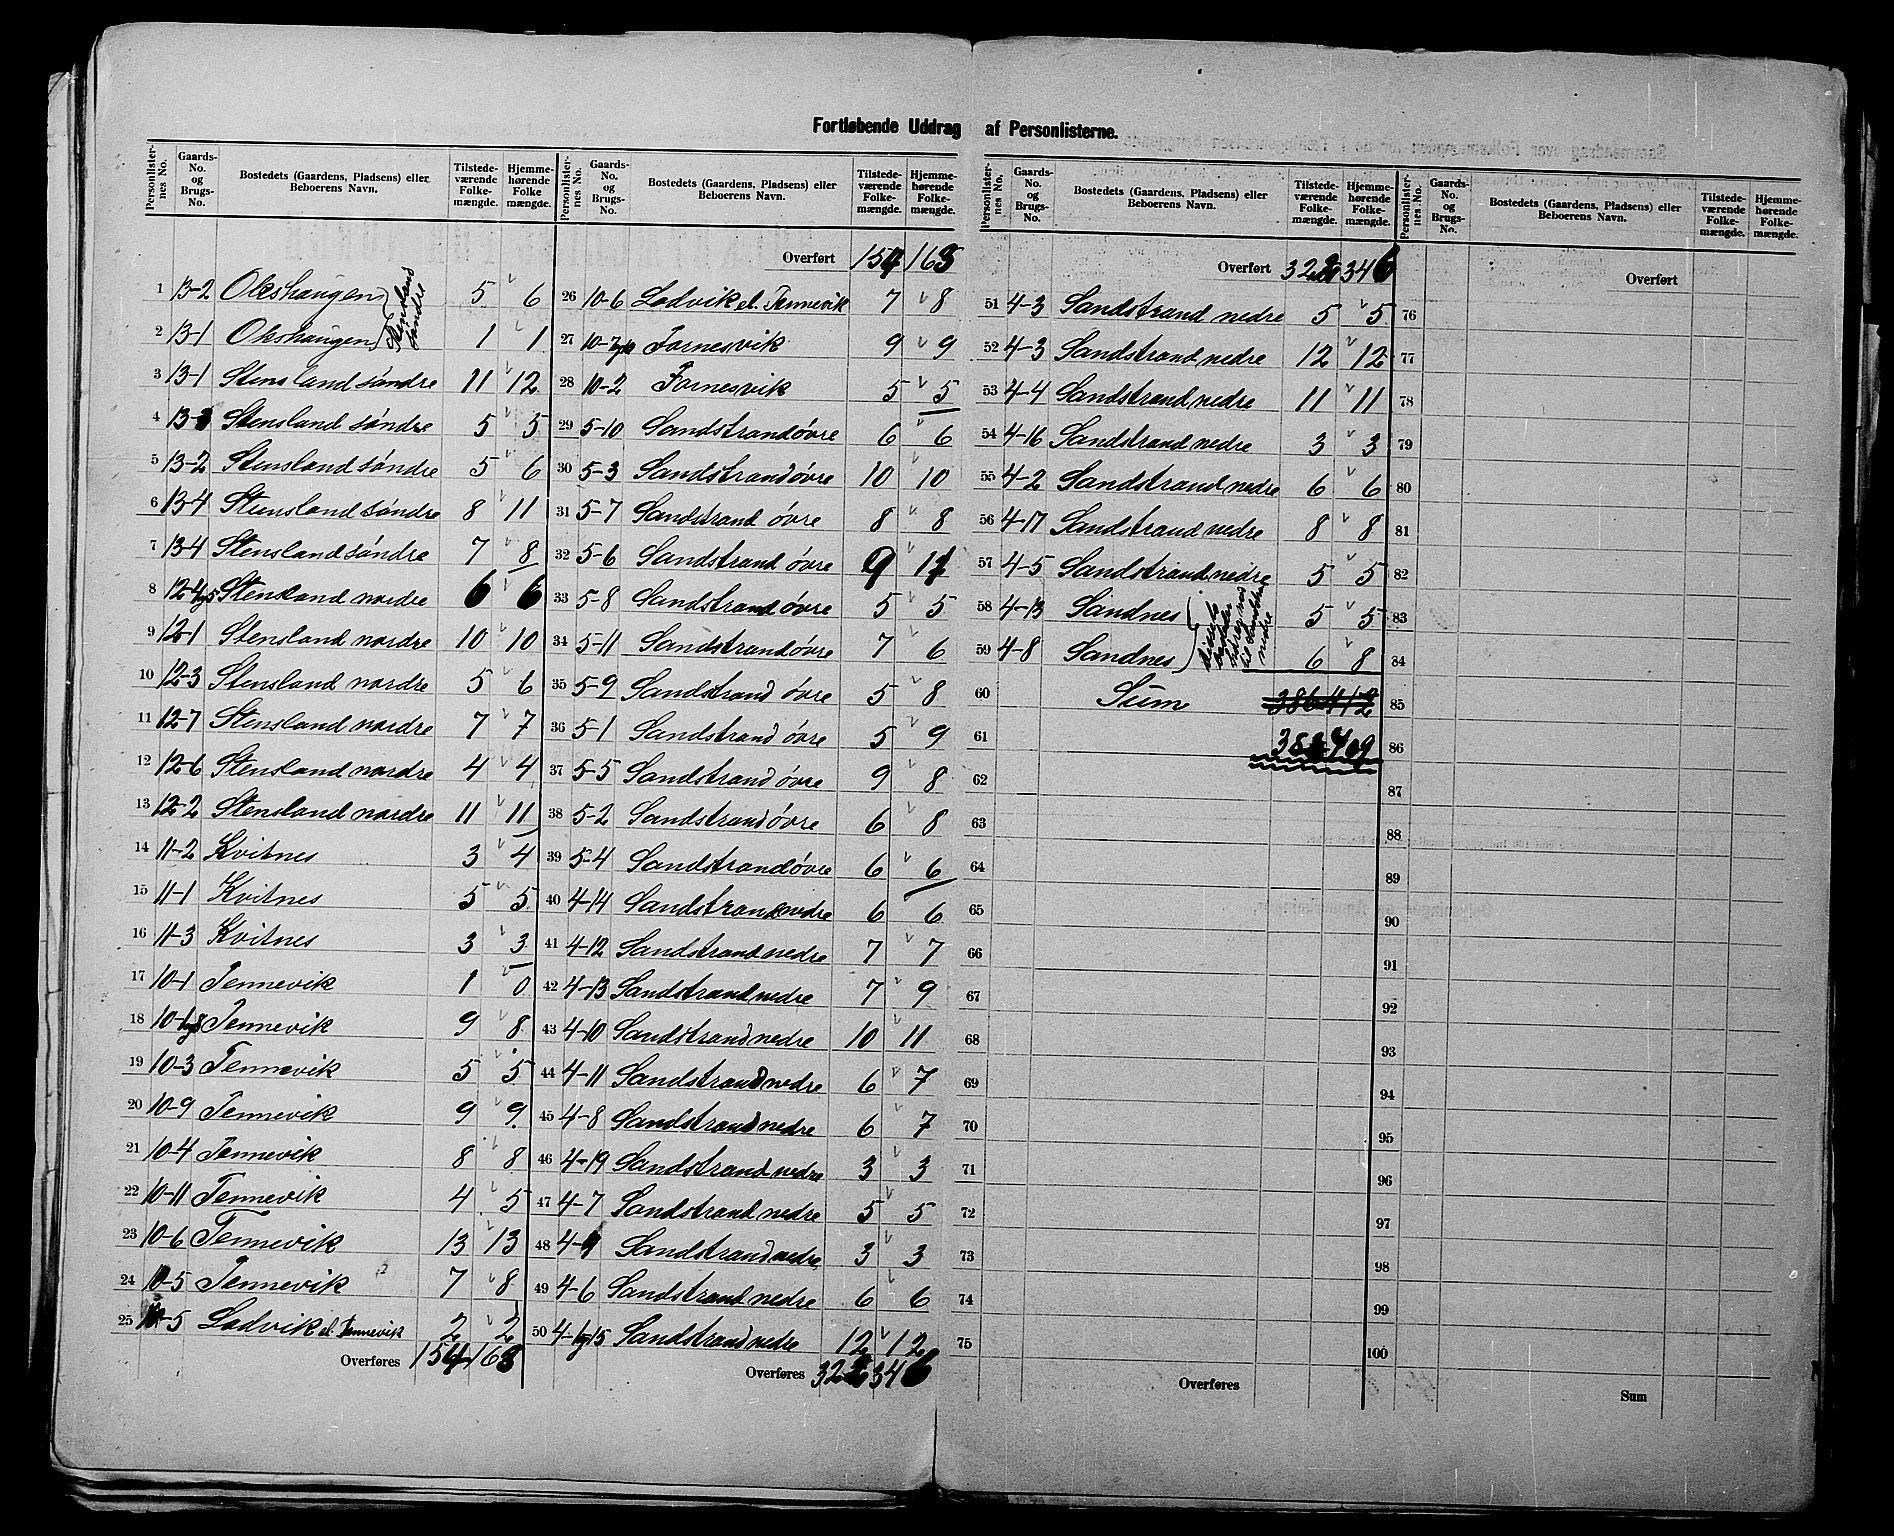 Fortløbende Uddrag af Personlisterne.
Personlister-nes No. Gaards-No. og Brugs-No. Bostedets (Gaardens, Pladsens) eller Beboerens Navn. Tilstede-værende Folke-mængde. Hjemme-hørende Folke mængde.
1 13-2 Okshaugen 5 6
2 13-1 Okshaugen 1 1
Stensland søndre
3 13-1 Stensland søndre 11 12
4 13-3 Stensland søndre 5 5
5 13-2 Stensland søndre 5 6
6 13-4 Stensland søndre 8 11
7 13-4 Stensland søndre 7 8
8 12-4 og 5 Stensland nordre 6 6
9 12-1 Stensland nordre 10 10
10 12-3 Stensland nordre 5 6
11 12-7 Stensland nordre 7 7
12 12-6 Stensland nordre 4 4
13 12-2 Stensland nordre 11 11
14 11-2 Kvitnes 3 4
15 11-1 Kvitnes 5 5
16 11-3 Kvitnes 3 3
17 10-1 Tennevik 1 0
18 10-1 og 8 Tennevik 9 8
19 10-3 Tennevik 5 5
20 10-9 Tennevik 9 9
21 10-4 Tennevik 8 8
22 10-11 Tennevik 4 5
23 10-6 Tennevik 13 13
24 10-5 Tennevik 7 8
25 10-5 Ladvik el. Tennevik 2 2
Overføres 154 163
Personlister-nes No. Gaards-No. og Brugs-No. Bostedets (Gaardens, Pladsens) eller Beboerens Navn. Tilstede-værende Folke-mængde. Hjemme-hørende Folke-mængde.
Overført 154 163
26 10-6 Ladvik el. Tennevik 7 8
27 10-7 og 10 Fornesvik 9 9
28 10-2 Fornesvik 5 5
29 5-10 Sandstrand øvre 6 6
30 5-3 Sandstrand øvre 10 10
31 5-7 Sandstrand øvre 8 8
32 5-6 Sandstrand øvre 9 11
33 5-8 Sandstrand øvre 5 5
34 5-11 Sandstrand øvre 7 6
35 5-9 Sandstrand øvre 5 8
36 5-1 Sandstrand øvre 5 9
37 5-5 Sandstrand øvre 9 8
38 5-2 Sandstrand øvre 6 8
39 5-4 Sandstrand øvre 6 6
40 4-14 Sandstrand nedre 6 6
41 4-12 Sandstrand nedre 7 7
42 4-13 Sandstrand nedre 7 9
43 4-10 Sandstrand nedre 10 11
44 4-11 Sandstrand nedre 6 7
45 4-8 Sandstrand nedre 6 7
46 4-19 Sandstrand nedre 3 3
47 4-7 Sandstrand nedre 5 5
48 4-9 Sandstrand nedre 3 3
49 4-6 Sandstrand nedre 6 6
50 4-1 og 15 Sandstrand nedre 12 12
Overføres 322 346
Personlister-nes No. Gaards-No. og Brugs-No. Bostedets (Gaardens, Pladsens) eller Beboerens Navn. Tilstede-værende Folke-mængde. Hjemme-hørende Folke-mængde.
Overført 322 346
51 4-3 Sandstrand nedre 5 5
52 4-3 Sandstrand nedre 12 12
53 4-4 Sandstrand nedre 11 11
54 4-16 Sandstrand nedre 3 3
55 4-2 Sandstrand nedre 6 6
56 4-17 Sandstrand nedre 8 8
57 4-5 Sandstrand nedre 5 5
58 4-13 Sandnes 5 5
59 4-8 Sandnes 6 8
til Sandstrand nedre
60 Sum 386 412
61 383 409
62
63
64
65
66
67
68
69
70
71
72
73
74
75
Overføres
Personlister-nes No. Gaards-No. og Brugs-No. Bostedets (Gaardens, Pladsens) eller Beboerens Navn. Tilstede-værende Folke-mængde. Hjemme-hørende Folke-mængde.
Overført
76
77
78
79
80
81
82
83
84
85
86
87
88
89
90
91
92
93
94
95
96
97
98
99
100
Sum